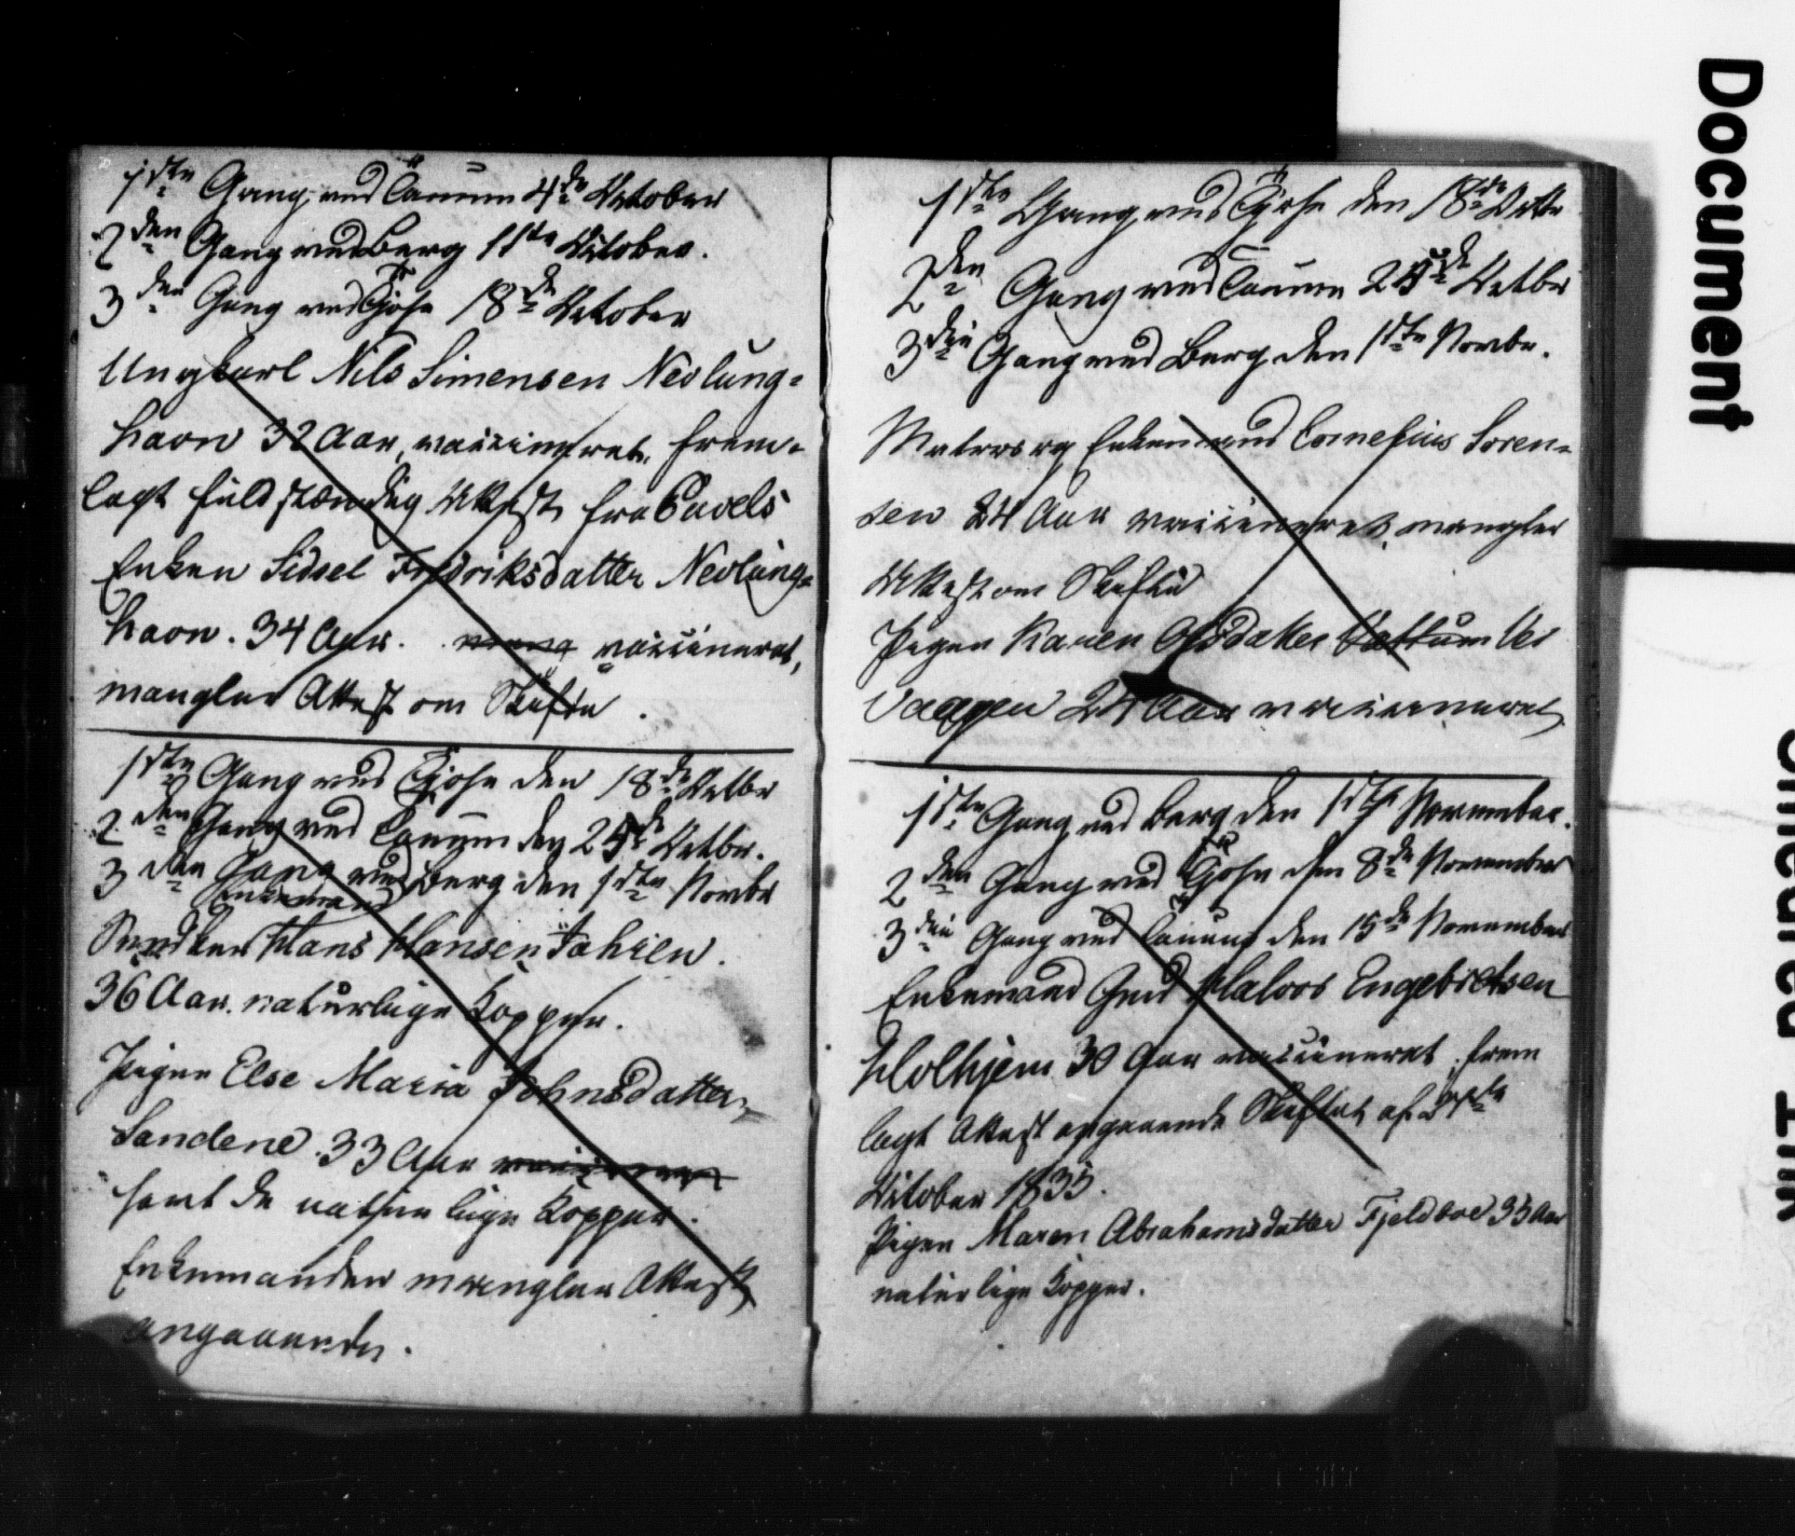 1ste Gang ved Laurve 4de October
2den Gang ved Berg 11te October.
3die Gang ved Tjøse 18de October
Ungkarl Nils Simensen Nevlung-
havn 32 Aar, vaccineret, frem-
lagt fuldstændig Attest fra
Enken Sidsel Fredriksdatter Nevlung-
havn. 34 Aar. vaccineret,
mangler Attest om Skifte.
1ste Gang ved Tjøse den 18de Octbr
2den Gang ved den 25de Octbr.
3die Gang ved Berg den 1ste Novbr
Enkemand
Hans Hansen
36 Aar. naturlige Kopper.
Pigen Else Maria Johnsdatter
Sandene. 33 Aar
havt de naturlige Kopper.
Enkemanden mangler Attest
angaaende.
1ste Gang ved Tjøse den 18de Octbr
2den Gang ved den 25de Octbr
3die Gang ved Berg den 1ste Novbr.
Matros og Enkemand Cornelius Soren-
sen 24 Aar vaccineret, mangler
Attest om Skifte
Pigen Karen Olsdatter
Vaagen 24 Aar vaccineret
1ste Gang ved Berg den 1ste November.
2den Gang ved Tjøse den 8de November
3die Gang ved den 15de November
Enkemand Halvor Engebretsen
Holhjem 30 Aar vaccineret, frem
lagt Attest angaaende Skiftet af
October 1835.
Pigen Maren Abrahamsdatter Fjeldboe 35 Aar
naturlige Kopper.
Document